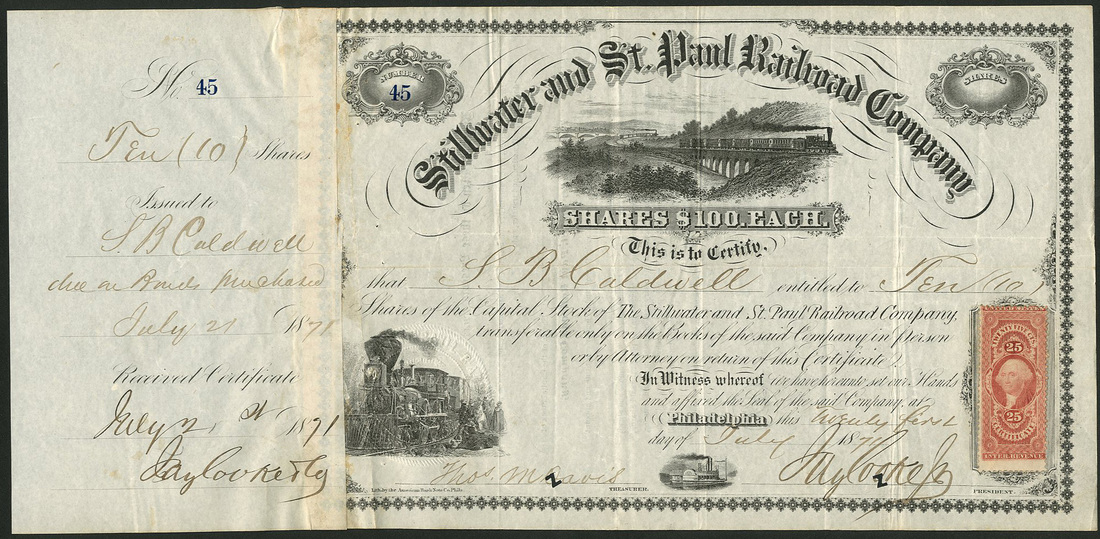 No. 45
Ten (10) Shares
Issued to
S B Caldwell
due on Bonds purchased
July 21 1871
Received Certificate
July 21st 1871
Jay Cooke Jr
NUMBER
45
SHARES
Stillwater and St. Paul Railroad Company
SHARES $100. EACH.
This is to Certify,
that S. B Caldwell entitled to Ten (10)
Shares of the Capital Stock of The Stillwater and St. Paul Railroad Company,
transferable only on the Books of the said Company in person
or by Attorney on return of this Certificate.
In Witness whereof we have hereunto set our Hands
and affixed the Seal of the said Company, at
Philadelphia this twenty first
day of July 1871
Thos. M Davis TREASURER.
Jay Cooke Jr PRESIDENT.
Lith. by the American Bank Note Co. Phila.
TWENTY FIVE CENTS
25
25
CERTIFICATE
INTER. REVENUE